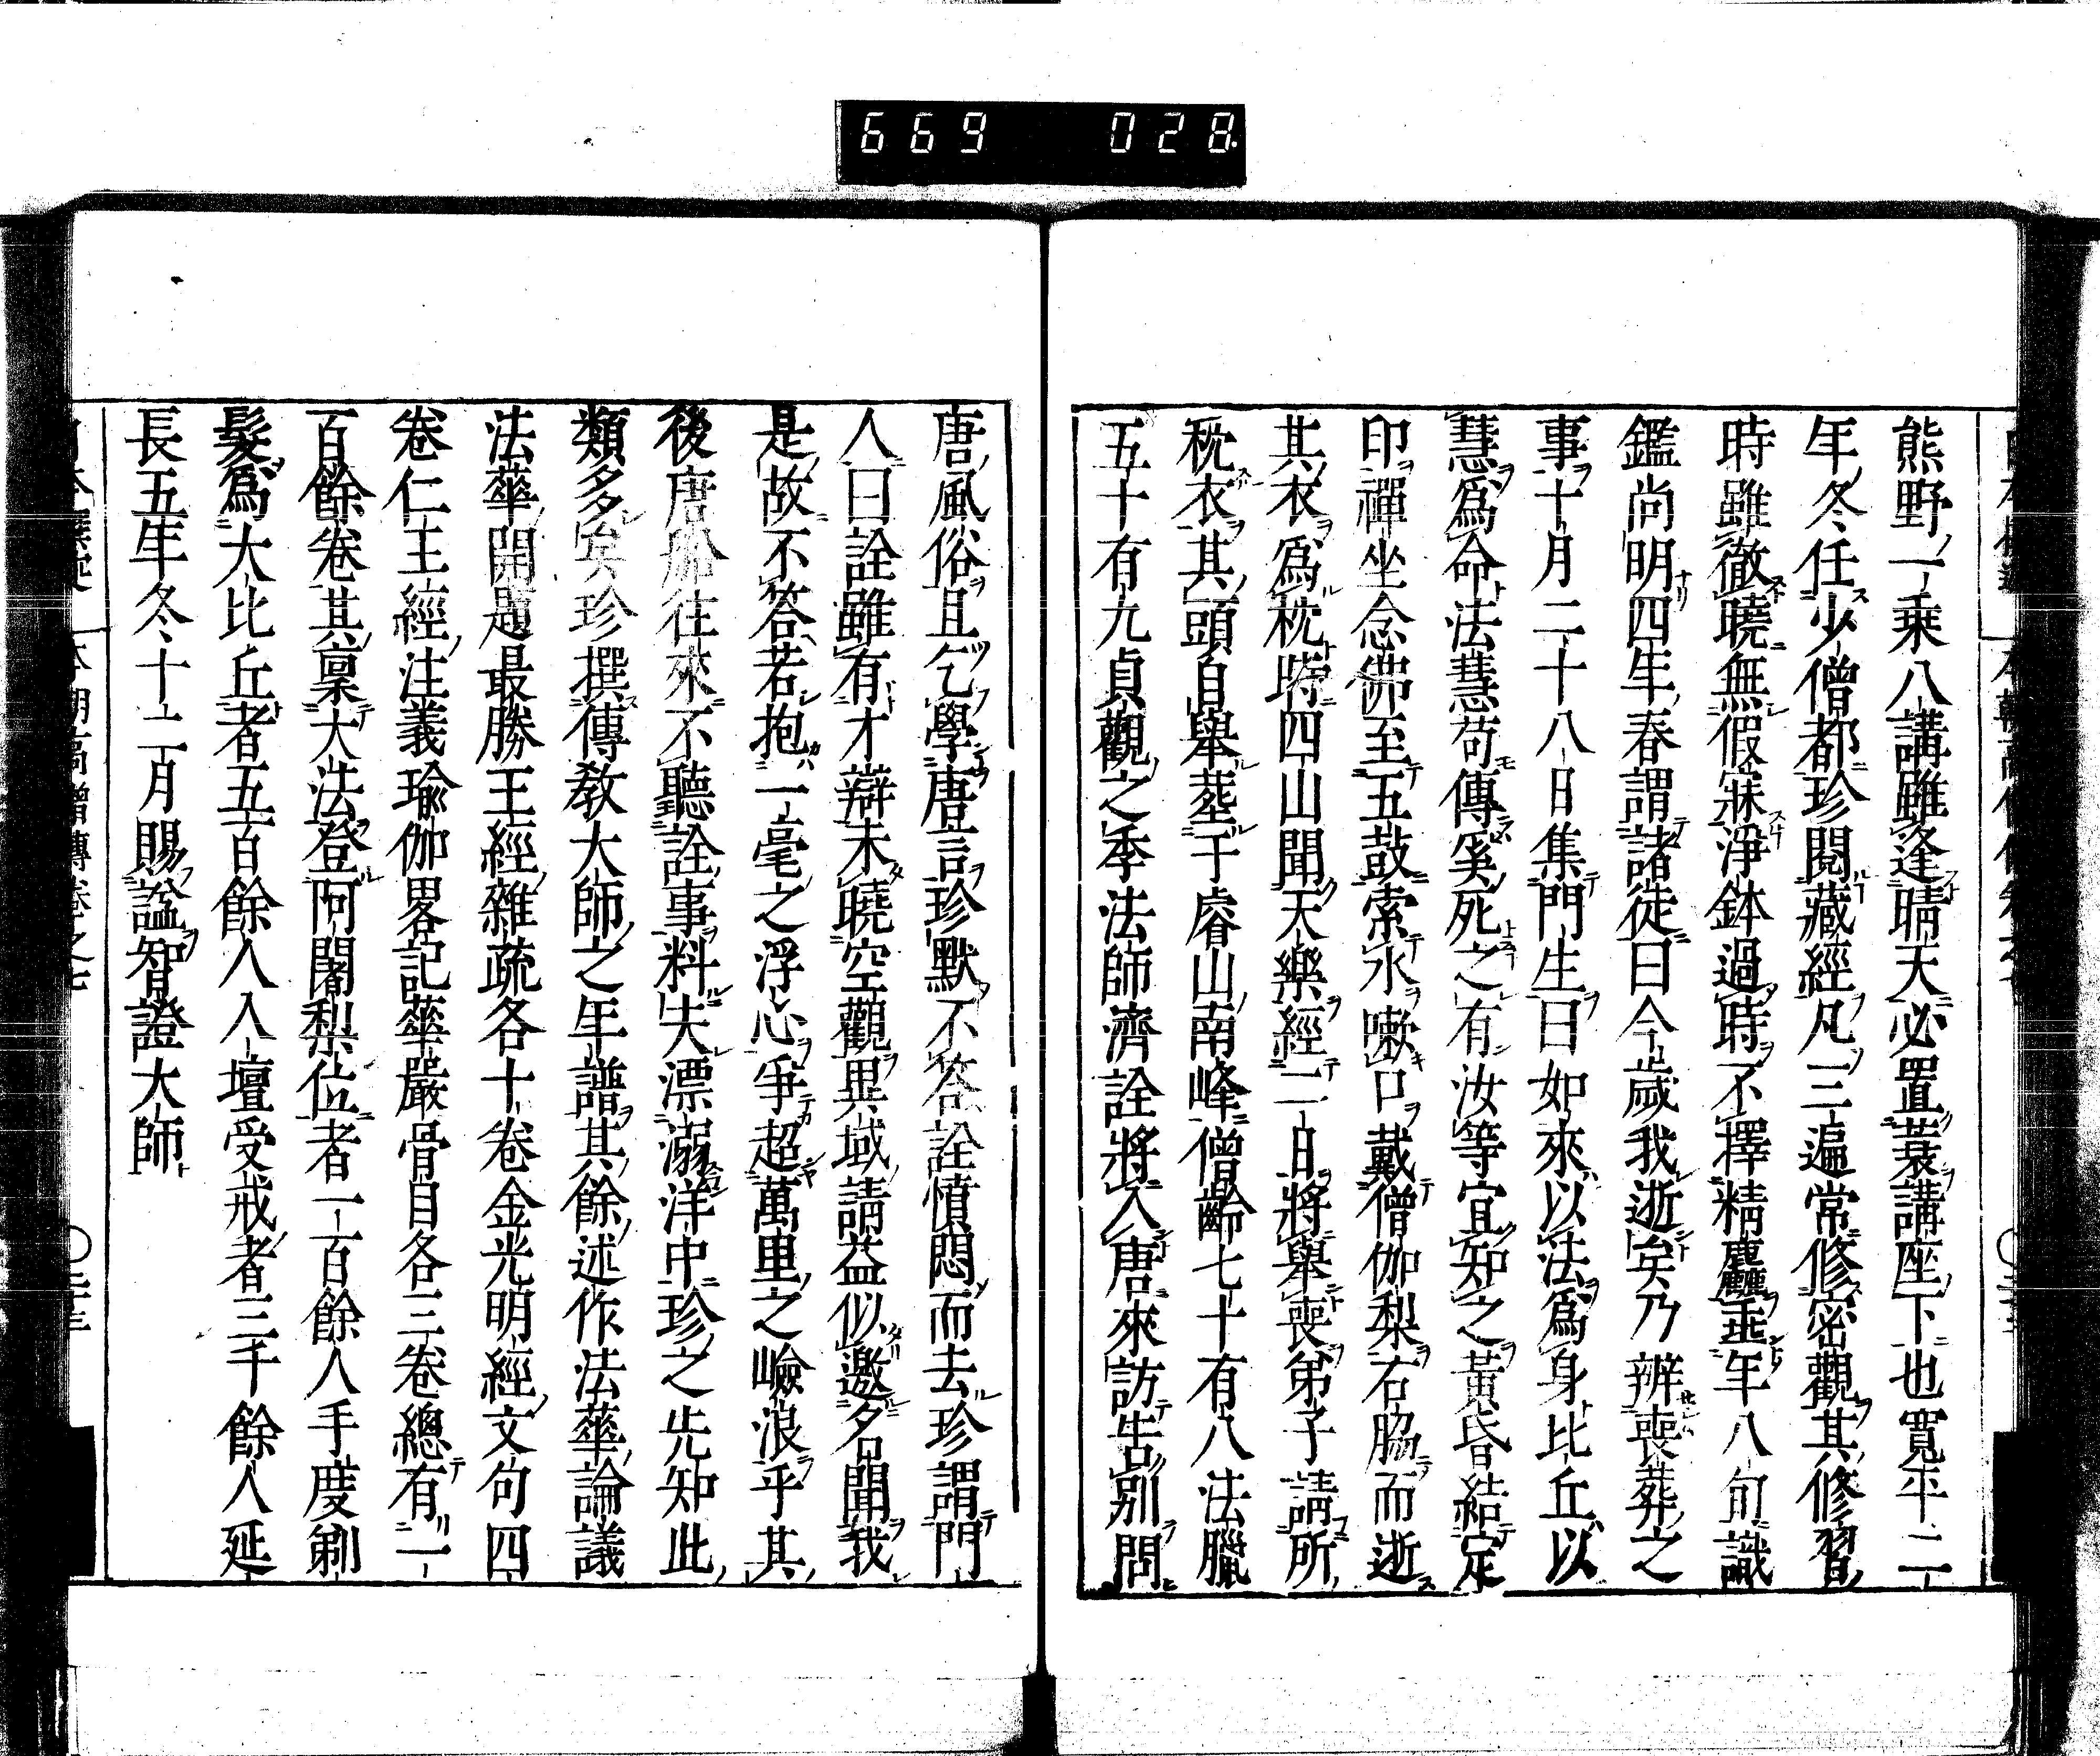 669 028
熊野一乗八講雖逢晴天必置蓑講座下也寬平二
年冬任少僧都珍閱藏經凡三遍常修密觀其修習
時雖徹曉無假寐淨鉢過時不擇精麤垂年八旬識
鑑尚明四年春謂諸徒曰今歲我逝矣乃辨喪葬之
事十月二十八日集門生曰如來以法爲身比丘以
慧爲命法慧苟傳奚死之有汝等宜知之黃昏結定
印禪坐念佛至五鼓索水嗽口戴僧伽梨右脇而逝
其衣爲枕時四山聞天樂經二日將舉喪弟子請所
稅衣其頭自舉塟于睿山南峰僧齡七十有八法臘
五十有九貞觀之季法師濟詮將入唐來訪告別問
唐風俗且乞學唐言珍默不答詮憤悶而去珍謂門
人曰詮雖有才辯未曉空觀異域請益似邀名聞我
是故不答若抱一毫之浮心爭超萬里之嶮浪乎其
後唐舶往來不聽詮事料夫漂溺洋中珍之先知此
類多矣珍撰傳教大師之年譜其餘述作法華論議
法華開題最勝王經雜疏各十卷金光明經文句四
卷仁王經注義瑜伽畧記華嚴骨目各三卷總有一
百餘卷其稟大法登阿闍梨位者一百餘人手度剃
髮爲大比丘者五百餘人入壇受戒者三千餘人延
長五年冬十二月賜諡智證大師